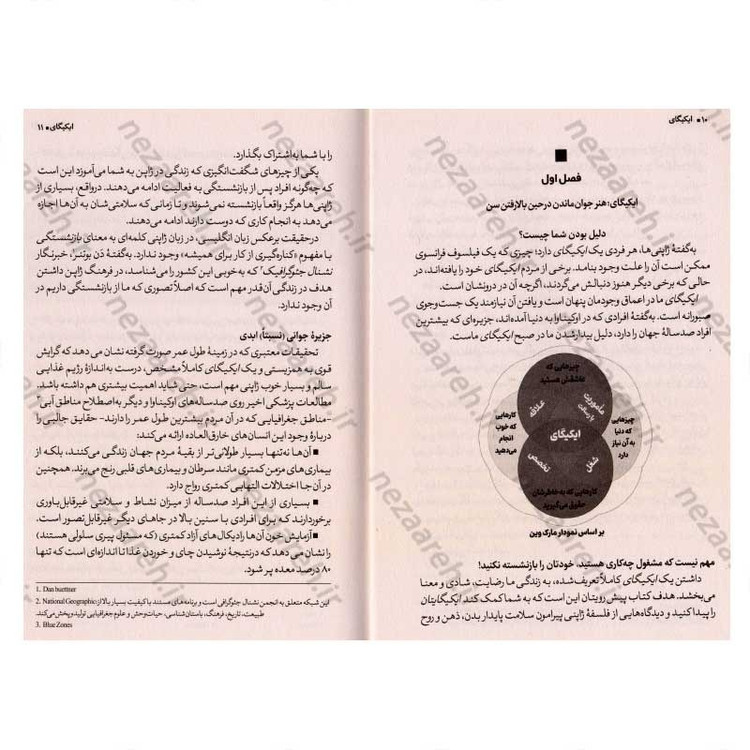 ۱۰ ■ ایکیگای
فصل اول
ایکیگای؛ هنر جوان ماندن در حین بالا رفتن سن
دلیل بودن شما چیست؟
به‌گفتهٔ ژاپنی‌ها، هر فردی یک ایکیگای دارد؛ چیزی که یک فیلسوف فرانسوی
ممکن است آن را علت وجود بنامد. برخی از مردم ایکیگای خود را یافته‌اند، در
حالی که برخی دیگر هنوز دنبالش می‌گردند، اگرچه آن در درونشان است.
ایکیگای ما در اعماق وجودمان پنهان است و یافتن آن نیازمند یک جست‌وجوی
صبورانه است. به‌گفتهٔ افرادی که در اوکیناوا به دنیا آمده‌اند، جزیره‌ای که بیشترین
افراد صدسالهٔ جهان را دارد، دلیل بیدارشدن ما در صبح ایکیگای ماست.
چیزهایی که
عاشقش هستید
مأموریت
یا رسالت
علاقه
چیزهایی
که دنیا
به آن نیاز
دارد
ایکیگای
کارهایی
که خوب
انجام
می‌دهید
شغل
تخصص
کارهایی که به‌خاطرشان
حقوق می‌گیرید
بر اساس نمودار مارک وین
مهم نیست که مشغول چه‌کاری هستید، خودتان را بازنشسته نکنید!
داشتن یک ایکیگای کاملاً تعریف‌شده، به زندگی ما رضایت، شادی و معنا
می‌بخشد. هدف کتاب پیش رویتان این است که به شما کمک کند ایکیگایتان
را پیدا کنید و دیدگاه‌هایی از فلسفهٔ ژاپنی پیرامون سلامت پایدار بدن، ذهن و روح
ایکیگای ■ ۱۱
را با شما به‌اشتراک بگذارد.
یکی از چیزهای شگفت‌انگیزی که زندگی در ژاپن به شما می‌آموزد این است
که چه‌گونه افراد پس از بازنشستگی به فعالیت ادامه می‌دهند. درواقع، بسیاری از
ژاپنی‌ها هرگز واقعاً بازنشسته نمی‌شوند و تا زمانی که سلامتی‌شان به آن‌ها اجازه
می‌دهد به انجام کاری که دوست دارند ادامه می‌دهند.
درحقیقت برعکس زبان انگلیسی، در زبان ژاپنی کلمه‌ای به معنای بازنشستگی
با مفهوم «کناره‌گیری از کار برای همیشه» وجود ندارد. به‌گفتهٔ دَن بوتنر¹، خبرنگار
نشنال جئوگرافیک² که به خوبی این کشور را می‌شناسد، در فرهنگ ژاپن داشتن
هدف در زندگی آن‌قدر مهم است که اصلاً تصوری که ما از بازنشستگی داریم در
آن وجود ندارد.
جزیرهٔ جوانی (نسبتاً) ابدی
تحقیقات معتبری که در زمینهٔ طول عمر صورت گرفته نشان می‌دهد که گرایش
قوی به هم‌زیستی و یک ایکیگای کاملاً مشخص، درست به‌اندازهٔ رژیم غذایی
سالم و بسیار خوب ژاپنی مهم است، حتی شاید اهمیت بیشتری هم داشته باشد.
مطالعات پزشکی اخیر روی صدساله‌های اوکیناوا و دیگر به‌اصطلاح مناطق آبی³
-مناطق جغرافیایی که در آن مردم بیشترین طول عمر را دارند- حقایق جالبی را
دربارهٔ وجود این انسان‌های خارق‌العاده ارائه می‌کند:
■ آن‌ها نه‌تنها بسیار طولانی‌تر از بقیهٔ مردم جهان زندگی می‌کنند، بلکه از
بیماری‌های مزمن کمتری مانند سرطان و بیماری‌های قلبی رنج می‌برند. همچنین
در آن‌جا اختلالات التهابی کمتری رواج دارد.
■ بسیاری از این افراد صدساله از میزان نشاط و سلامتی غیرقابل‌باوری
برخوردارند که برای افرادی با سنین بالا در جاهای دیگر غیرقابل‌تصور است.
■ آزمایش خون آن‌ها رادیکال‌های آزاد کمتری (که مسئول پیری سلولی هستند)
را نشان می دهد که درنتیجهٔ نوشیدن چای و خوردن غذا تا اندازه‌ای است که تنها
۸۰ درصد معده پر شود.
1. Dan buettner
2. National Geographic: این شبکه متعلق به انجمن نشنال جئوگرافی است و برنامه‌های مستند با کیفیت بسیار بالا از
طبیعت، تاریخ، فرهنگ، باستان‌شناسی، حیات‌وحش و علوم جغرافیایی تولید و پخش می‌کند.
3. Blue Zones
nezaareh.ir
nezaareh.ir
nezaareh.ir
nezaareh.ir
nezaareh.ir
nezaareh.ir